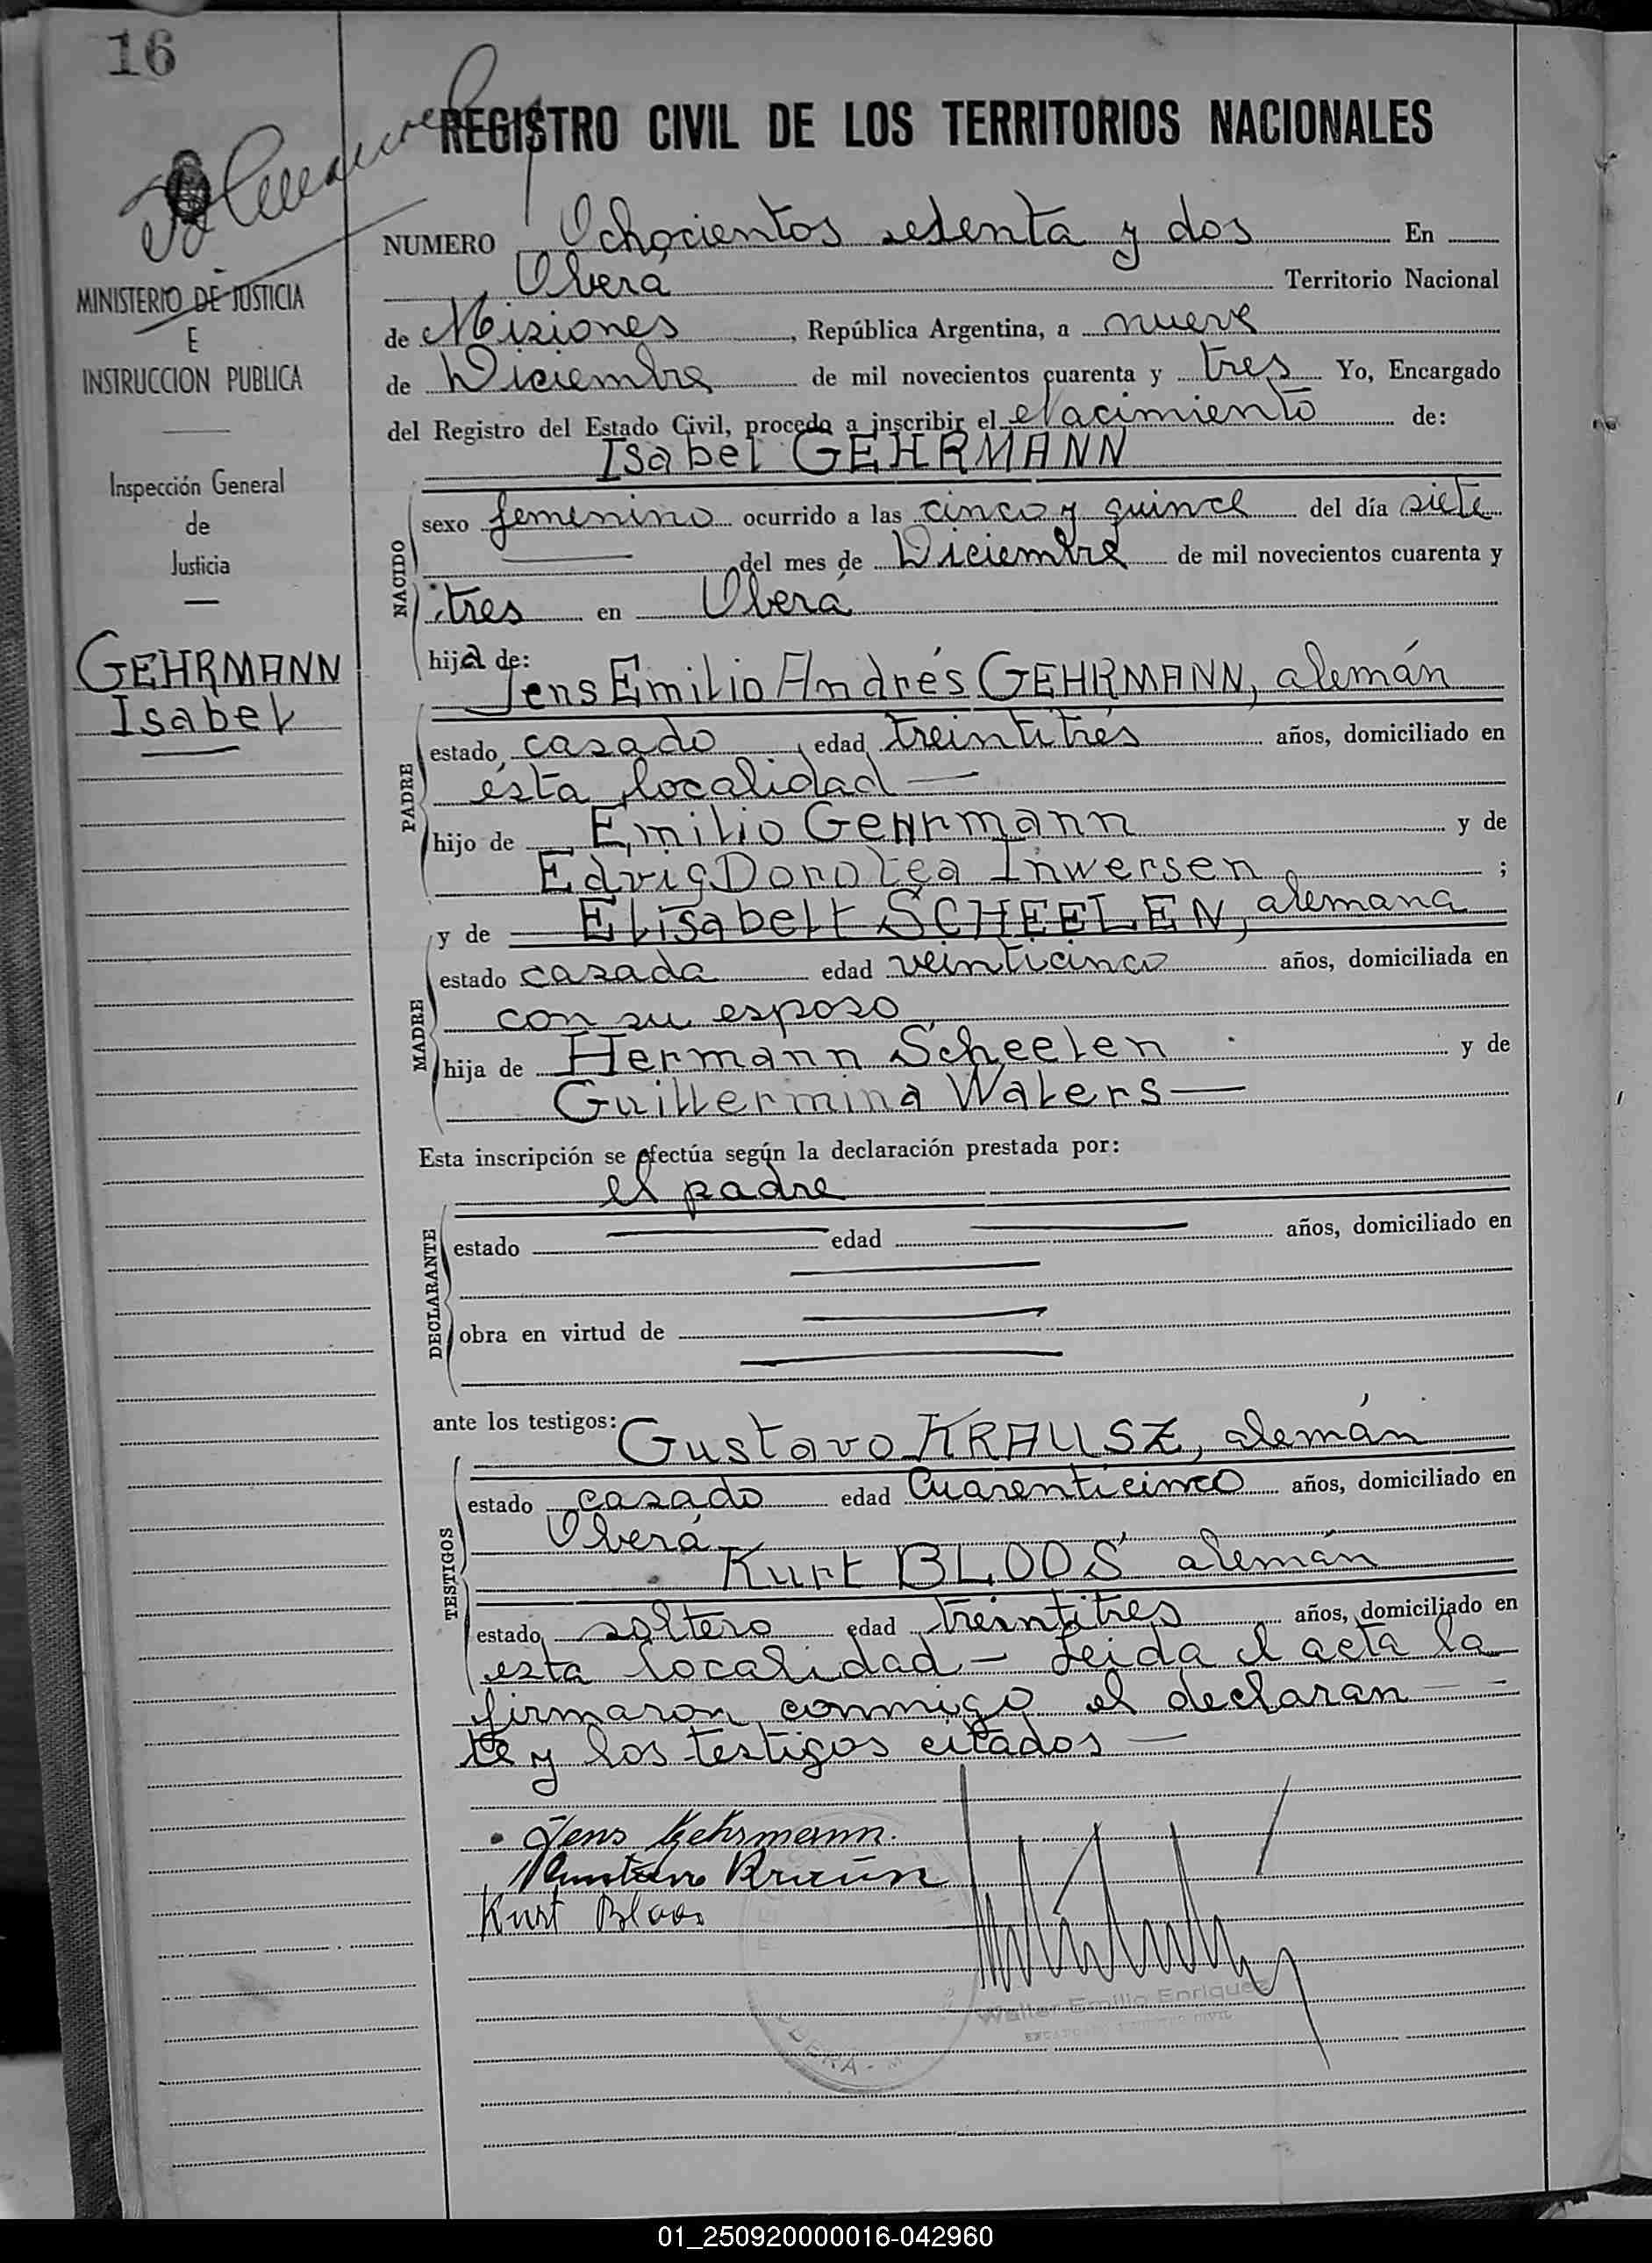 16
REGISTRO CIVIL DE LOS TERRITORIOS NACIONALES
MINISTERIO DE JUSTICIA
E
INSTRUCCION PUBLICA
Inspección General
de
Justicia
GEHRMANN
Isabel
NUMERO Ochocientos setenta y dos En
Oberá Territorio Nacional
de Misiones, República Argentina, a nueve
de Diciembre de mil novecientos cuarenta y tres Yo, Encargado
del Registro del Estado Civil, procedo a inscribir el Nacimiento de:
Isabel GEHRMANN
NACIDO
sexo femenino ocurrido a las cinco y quince del día siete
del mes de Diciembre de mil novecientos cuarenta y
tres en Oberá
hija de:
Jens Emilio Andrés GEHRMANN, alemán
PADRE
estado casado, edad treintitrés años, domiciliado en
ésta localidad —
hijo de Emilio Gehrmann y de
Edvig Dorotea Inwersen ;
y de Elisabeth SCHEELEN, alemana
MADRE
estado casada edad veinticinco años, domiciliada en
con su esposo
hija de Hermann Scheelen y de
Guillermina Walers —
Esta inscripción se efectúa según la declaración prestada por:
el padre
DECLARANTE
estado edad años, domiciliado en
obra en virtud de
ante los testigos:
Gustavo KRAUSZ, alemán
TESTIGOS
estado casado edad Cuarenticinco años, domiciliado en
Oberá
Kurt BLOOS alemán
estado soltero edad treintitres años, domiciliado en
esta localidad — Leida el acta la
firmaron conmigo el declaran
te y los testigos citados —
Jens Gehrmann.
Kurt Bloos
Walter Emilio Enriquez
ENCARGADO REGISTRO CIVIL
OBERÁ - M
01_250920000016-042960